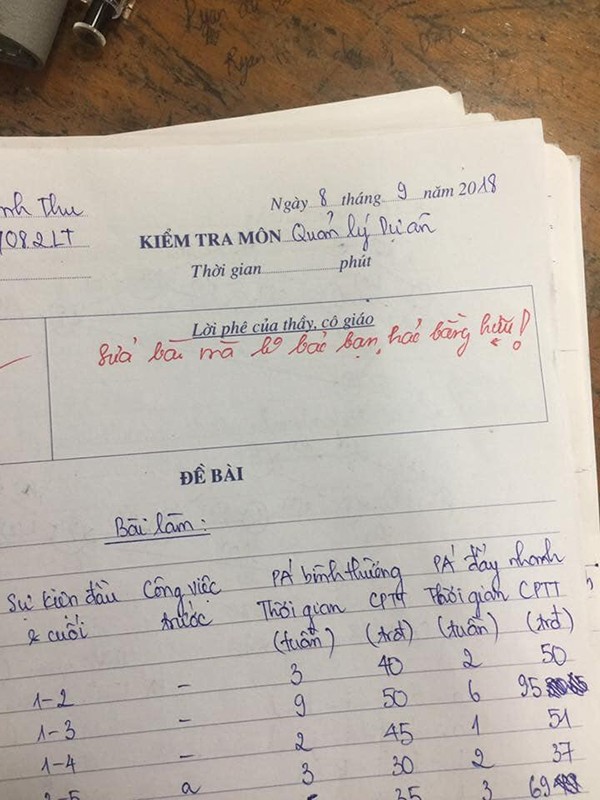 Ngày 8 tháng 9 năm 2018
nh Thu
1082LT
KIỂM TRA MÔN Quản lý Dự án
Thời gian phút
Lời phê của thầy, cô giáo
Sửa bài mà k bảo bạn, hảo bằng hữu!
ĐỀ BÀI
Bài làm:
Sự kiện đầu Công việc PÁ bình thường PÁ đẩy nhanh
& cuối trước Thời gian CPTT Thời gian CPTT
(tuần) (trđ) (tuần) (trđ)
1-2 - 3 40 2 50
1-3 - 9 50 6 95
1-4 - 2 45 1 51
2-5 a 3 30 2 37
35 3 69